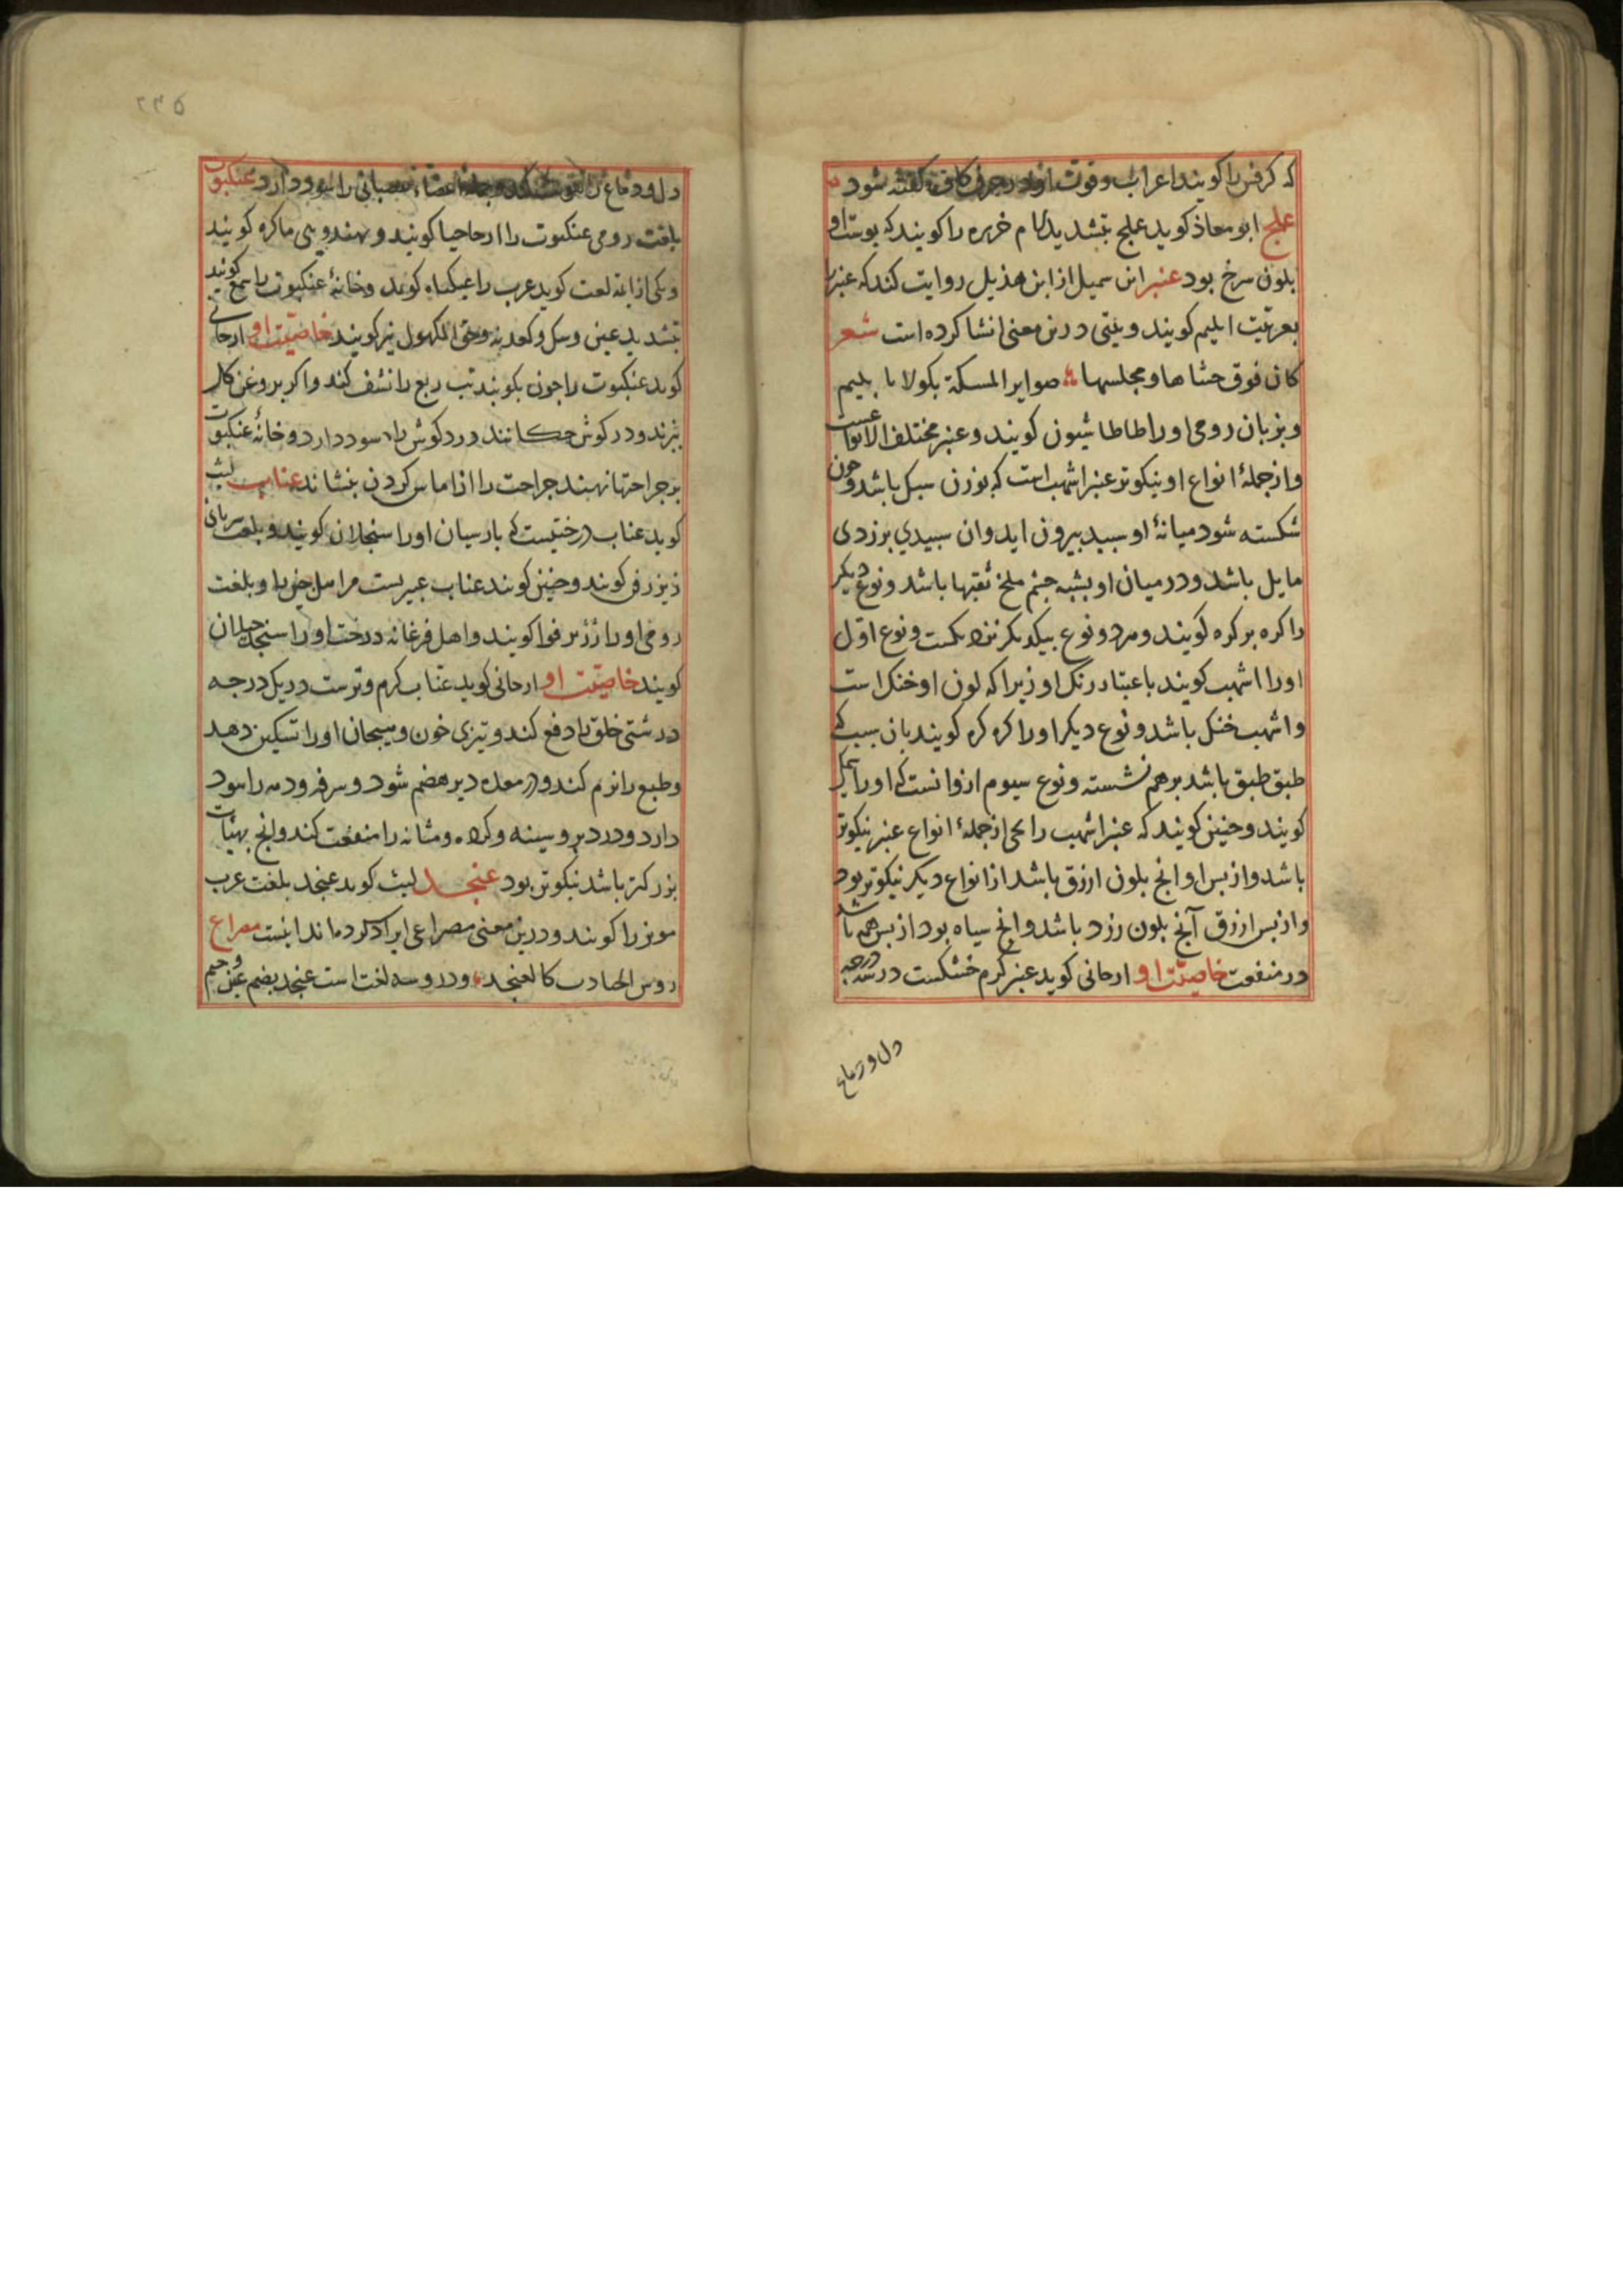 که کرفس را کویند اعراب وقوت او در حرف کاف کفته شود
عملج ابو معاذ کوید عملج بتشدید لام خربزه را کویند که پوست او
بلون سرخ بود عنبر ابن سمیل از ابن هذیل روایت کند که عنبر را
بعربیت ابلیم کویند وبیتی درین معنی انشا کرده است شعر
کان فوق حشاها ومجلسها صوایر المسکة بکولا با بلیم
وبزبان رومی اورا طاطاشیون کویند وعنبر مختلف الانواعست
واز جملهٔ انواع او نیکوتر عنبر اشهب است که بوزن سبک باشد وجون
شکسته شود میانهٔ او سبید بیرون اید وان سبیدی بزردی
مایل باشد ودر میان او بشبه جشم ملخ ثقبها باشد ونوع دیکر
را کره برکره کویند وهر دو نوع بیکدیکر نزدیکست ونوع اول
اورا اشهب کویند باعتبار رنک او زیرا که لون او خنک است
واشهب خنک باشد ونوع دیکر اورا کره کره کویند بان سبب که
طبق طبق باشد برهم نشسته ونوع سیوم ازو انست که اورا
کویند وجنین کویند که عنبر اشهب از جملهٔ انواع عنبر نیکوتر
باشد واز بس او انج بلون ازرق باشد از انواع دیکر نیکوتر بود
واز بس ازرق آنج بلون زرد باشد وانج سیاه بود از بس همه باشد
در منفعت خاصیّت او ارجانی کوید عنبر کرم خشکست در سه درجه
دل ودماغ
۲۳۵
دل ودماغ را قوت کند وجمله اعضاء عصبانی را سود دارد عنکبوت
بلغت رومی عنکبوت را ارحاحیا کویند وبهندوی ماکره کویند
ویکی از ایمه لغت کوید عرب عنکباه کویند وخانهٔ عنکبوت را کویند
بتشدید عین وحق الکهول نیز کویند خاصیّت او ارجانی
کوید عنکبوت را جون بکوبند تب ربع را نشف کند واکر بروغن کل
بزند ودر کوش جکانند درد کوش را سود دارد وخانهٔ عنکبوت
بر جراحتها نهند جراحت را از اماس کردن بنشاند عناب لیث
کوید عناب درختیست که بارسیان اورا سنجلان کویند وبلغت سریانی
زیزفی کویند وجنین کویند عناب وبلغت
رومی اورا کویند واهل فرغانه درخت اورا سنجد جیلان
کویند خاصیّت او ارجانی کوید عناب کرم وترست در یک درجه
درشتی حلق را دفع کند وتیزی خون وهیجان اورا تسکین دهد
وطبع را نرم کند ودر معده دیر هضم شود وسرفه ودمه را سود
دارد ودرد بر وسینه وکرده ومثانه را منفعت کند وانج بهیئات
بزرکتر باشد نیکوتر بود عنجد لیث کوید عنجد بلغت عرب
مویز را کویند ودرین معنی مصراعی ایراد کرده اند اینست مصراع
روس کالعنجد ودرو سه لغت است عنجد بضم عین وجیم